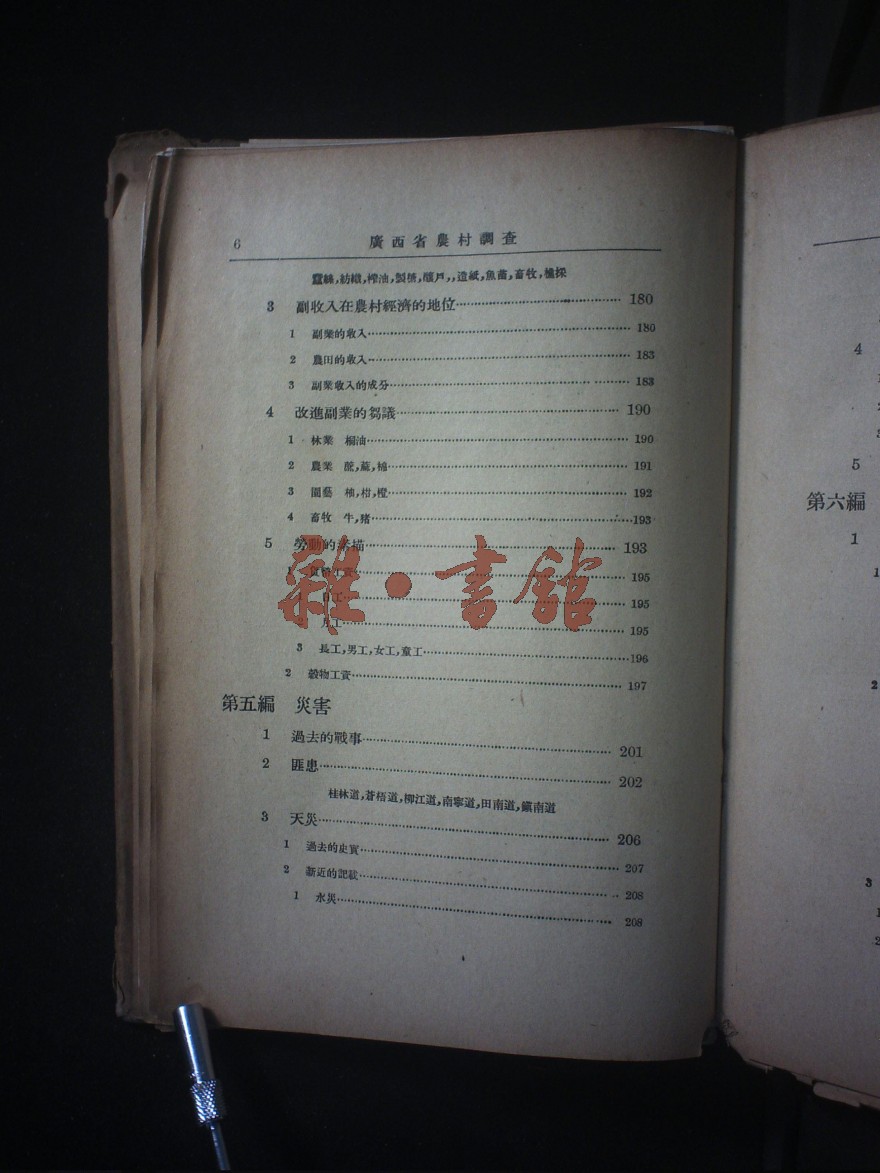 6 廣西省農村調查
蠶絲,紡織,榨油,製糖,釀戶,,造紙,魚苗,畜牧,樵採
3 副收入在農村經濟的地位 180
1 副業的收入 180
2 農田的收入 183
3 副業收入的成分 183
4 改進副業的芻議 190
1 林業 桐油 190
2 農業 蔗,蔴,棉 191
3 園藝 柚,柑,橙 192
4 畜牧 牛,豬 193
5 勞動的素描 193
1 工資 195
1 日工 195
2 月工 195
3 長工,男工,女工,童工 196
2 穀物工資 197
第五編 災害
1 過去的戰事 201
2 匪患 202
桂林道,蒼梧道,柳江道,南寧道,田南道,鎮南道
3 天災 206
1 過去的史實 207
2 新近的記載 208
1 水災 208
雜·書館
4
1
2
3
5
第六編
1
1
2
3
1
2